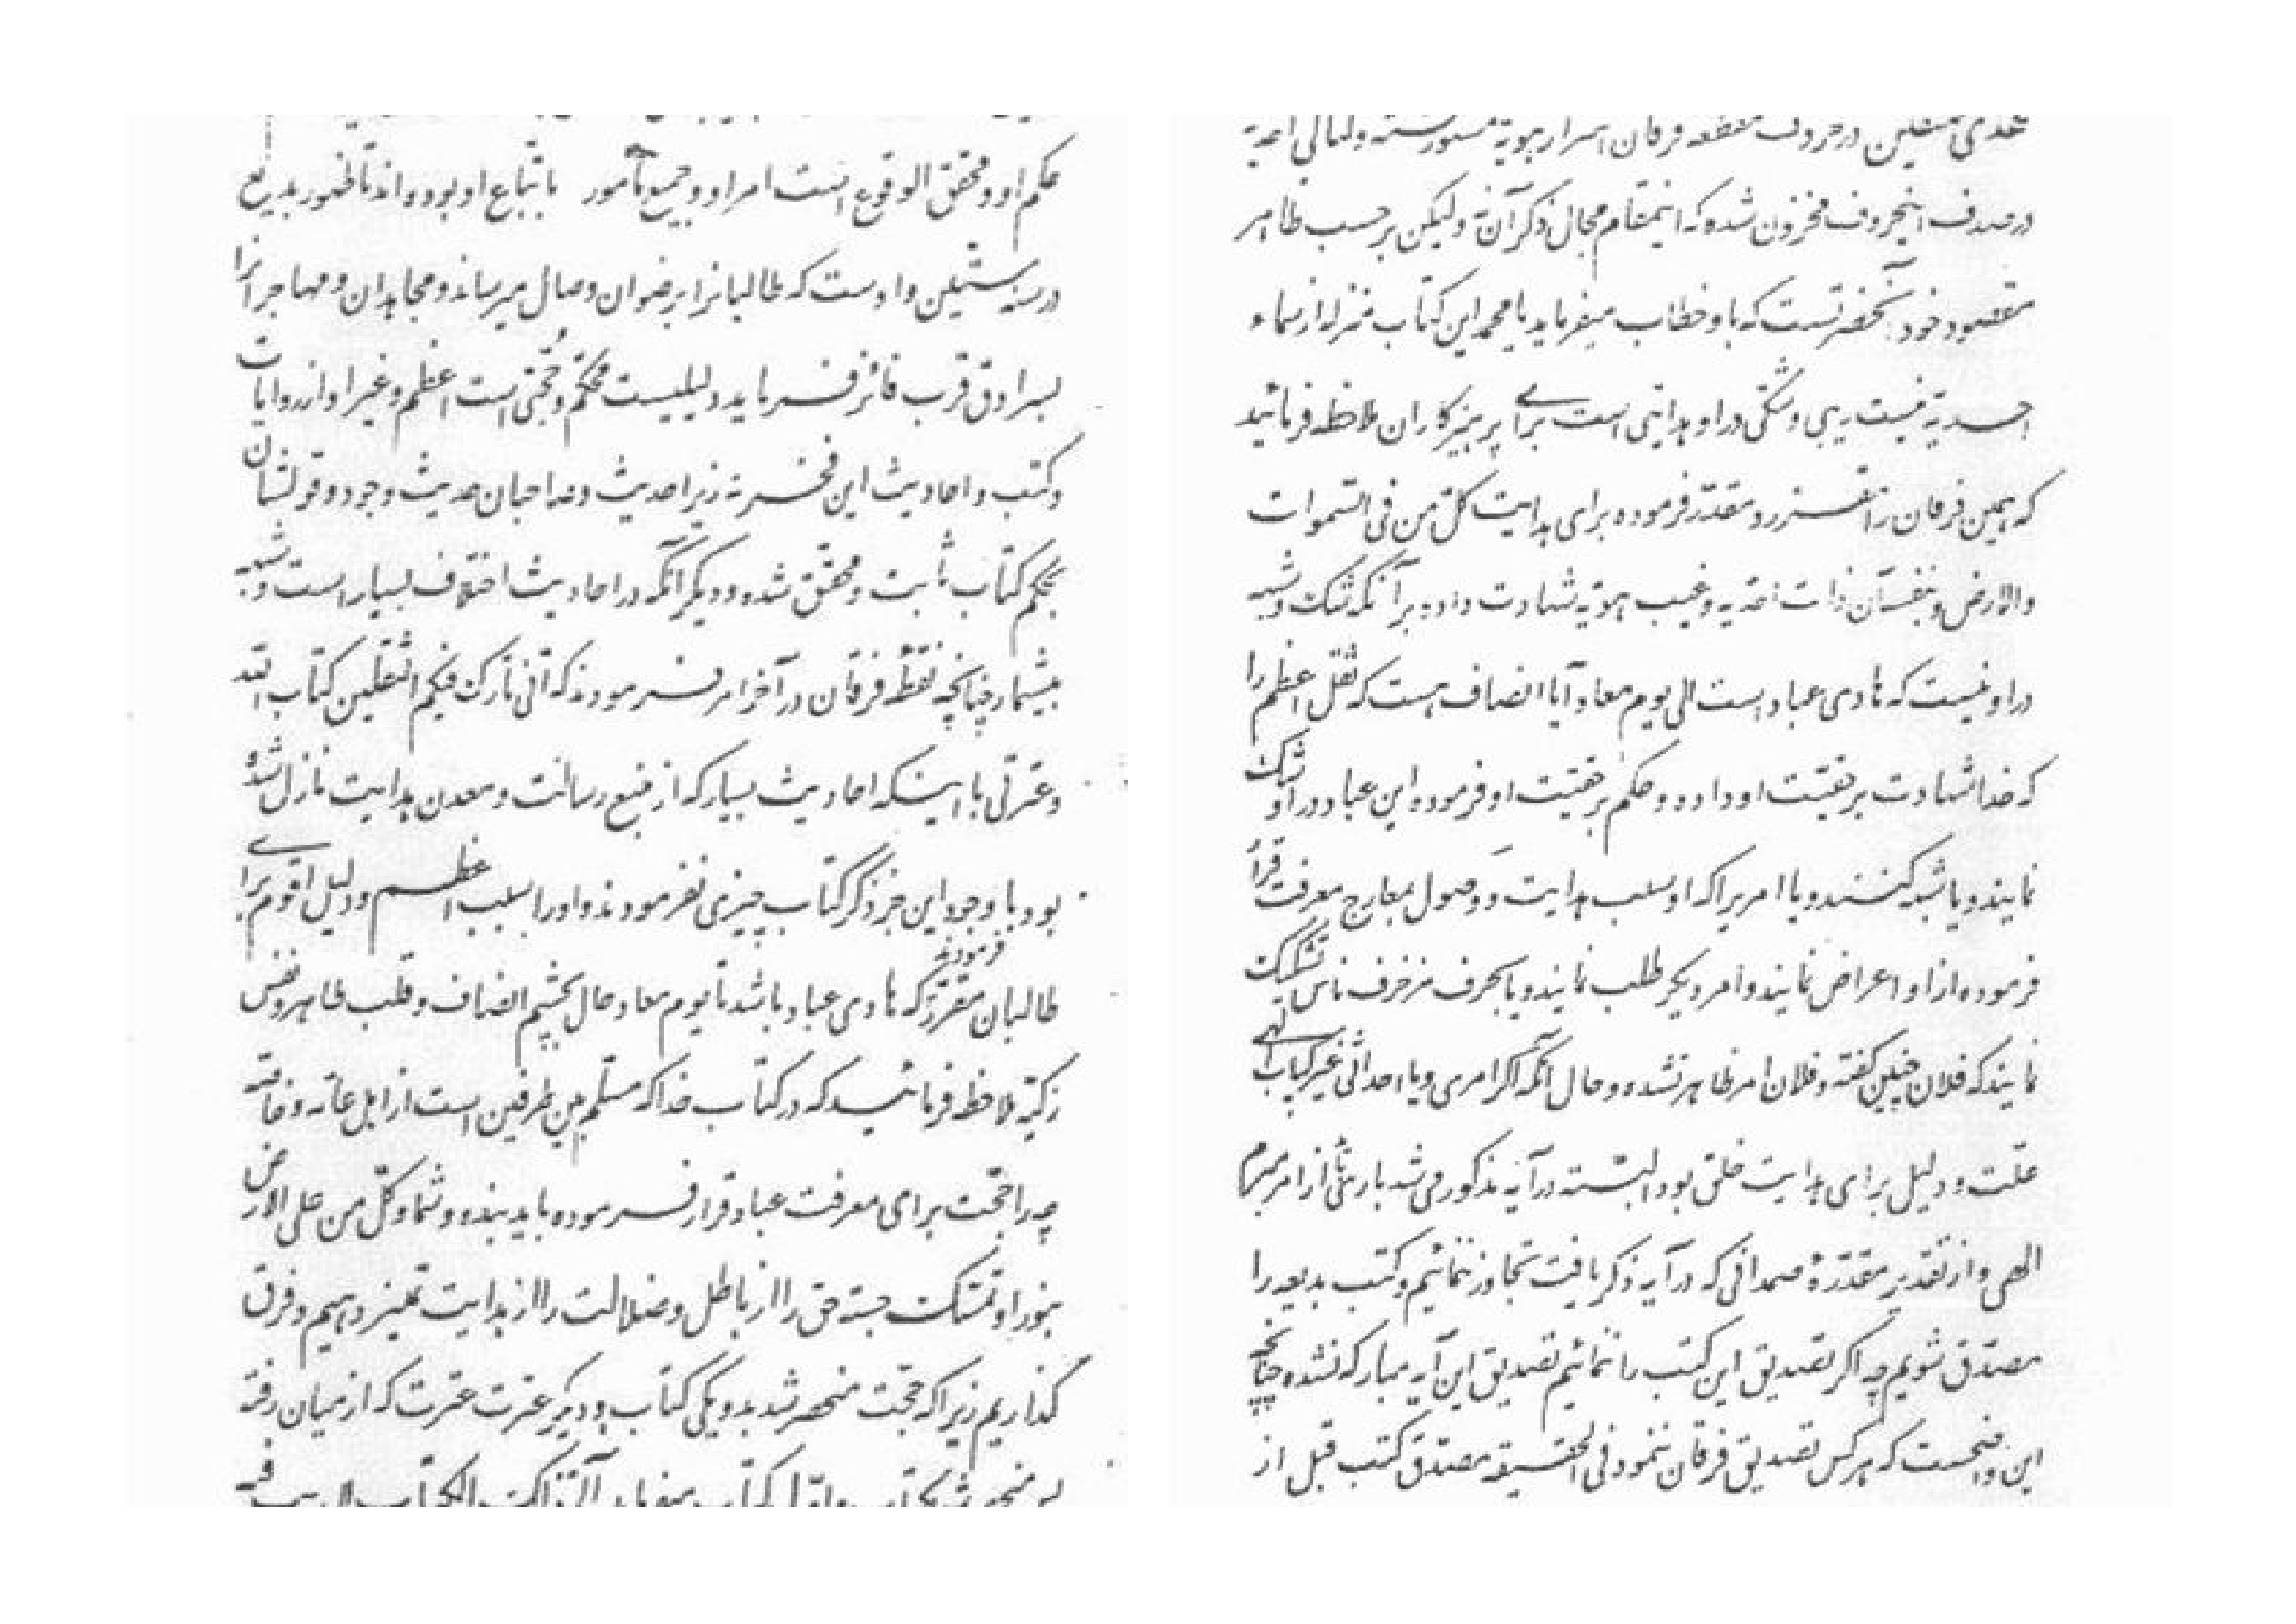 حکم او و محقق الوقوع است امر او و جمیع مأمور باتّباع او بوده‌اند تا ظهور بدیع
در سنه ستّین و اوست که طالبانرا برضوان وصال میرساند و مجاهدان و مهاجرانرا
بسرادق قرب فائز فرماید دلیلیست محکم و حُجّتی است اعظم و غیر او از روایات
و کتب و احادیث این فخر نه زیرا حدیث و صاحبان حدیث وجود و قولشان
بحکم کتاب ثابت و محقّق شده و دیگر آنکه در احادیث اختلاف بسیار است و شبهه
بیشمار چنانچه نقطهٔ فرقان در آخر امر فرمودند که انّی تارک فیکم الثّقلین کتاب الله
و عترتی با اینکه احادیث بسیار که از منبع رسالت و معدن هدایت نازل شده
بود با وجود این جز ذکر کتاب چیزی نفرمودند و او را سبب اعظم و دلیل اقوم برای
طالبان مقرّر فرمودند که هادی عباد باشد تا یوم معاد حال بچشم انصاف و قلب طاهر و نفس
زکیّه ملاحظه فرمائید که در کتاب خدا که مسلّم بین طرفین است از اهل عامّه و خاصّه
چه را حجّت برای معرفت عباد قرار فرموده باید بنده و شما و کلّ من علی الارض
بنور او تمسّک جسته حق را از باطل و ضلالت را از هدایت تمیز دهیم و فرق
گذاریم زیرا که حجّت منحصر شد بدو یکی کتاب و دیگر عترت عترت که از میان رفته
پس منحصر شد بکتاب و اوّل کتاب میفرماید الٓمٓ ذلک الکتاب لا ریب فیه
هدی للمتّقین در حروف مقطعه فرقان اسرار هویّه مستور گشته و لئالی احدیّه
در صدف اینحروف مخزون شده که اینمقام مجال ذکر آن نه ولیکن بر حسب ظاهر
مقصود خود آنحضرتست که باو خطاب میفرماید یا محمد این کتاب منزله از سماء
احدیّه نیست ریبی و شکّی در او هدایتی است برای پرهیزکاران ملاحظه فرمائید
که همین فرقان را مقرّر و مقدّر فرموده برای هدایت کلّ من فی السّموات
والارض و بنفسه آن ذات احدیّه و غیب هویّه شهادت داده بر آنکه شک و شبهه
در او نیست که هادی عباد است الی یوم معاد آیا انصاف هست که ثقل اعظم را
که خدا شهادت بر حقیّت او داده و حکم بر حقیّت او فرموده این عباد در او شک
نمایند و یا شبهه کنند و یا امریرا که او سبب هدایت و وصول بمعارج معرفت قرار
فرموده از او اعراض نمایند و امر دیگر طلب نمایند و یا بحرف مزخرف ناس تشکیک
نمایند که فلان چنین گفته و فلان امر ظاهر نشده و حال آنکه اگر امری و یا احداثی غیر کتاب الهی
علّت و دلیل برای هدایت خلق بود البتّه در آیه مذکور می شد باری از امر مبرم
الهی و از تقدیر مقدّرهٔ صمدانی که در آیه ذکر یافت تجاوز ننمائیم و کتب بدیعه را
مصدّق شویم چه اگر تصدیق این کتب را ننمائیم تصدیق این آیه مبارکه نشده چنانچه
این واضحست که هر کس تصدیق فرقان ننمود فی الحقیقه مصدّق کتب قبل از